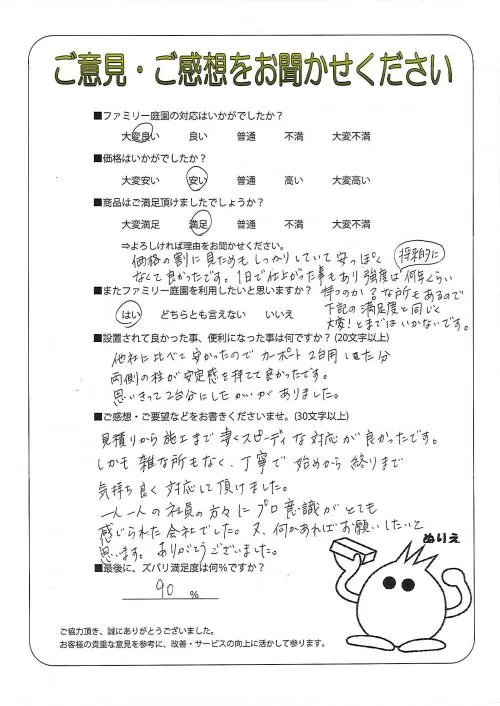 ご意見・ご感想をお聞かせください
■ファミリー庭園の対応はいかがでしたか?
大変良い 良い 普通 不満 大変不満
■価格はいかがでしたか?
大変安い 安い 普通 高い 大変高い
■商品はご満足頂けましたでしょうか?
大変満足 満足 普通 不満 大変不満
⇒よろしければ理由をお聞かせください。
価格の割に見ためもしっかりしていて安っぽく
なくて良かったです。1日で仕上がった事もあり 強度は 将来的に 何年くらい
■またファミリー庭園を利用したいと思いますか? 持つのか?な所もあるので
はい どちらとも言えない いいえ 下記の満足度と同じく
大変!とまではいかないです。
■設置されて良かった事、便利になった事は何ですか? (20文字以上)
他社に比べて安かったのでカーポート2台用にした分
両側の柱が安定感を持てて良かったです。
思いきって2台分にしたかいがありました。
■ご感想・ご要望などをお書きくださいませ。(30文字以上)
見積りから施工まで凄くスピーディな対応が良かったです。
しかも 雑な所もなく、丁寧で 始めから 終りまで
気持ち良く 対応して頂けました。
一人一人の社員の方々にプロ意識がとても
感じられた会社でした。又、何かあればお願いしたいと
思います。ありがとうございました。
■最後に、ズバリ満足度は何%ですか?
90 %
ぬりえ
ご協力頂き、誠にありがとうございました。
お客様の貴重な意見を参考に、改善・サービスの向上に活かして参ります。